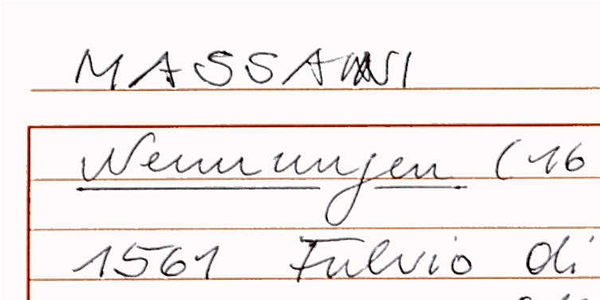 MASSANI
Nennungen (16
1561 Fulvio di